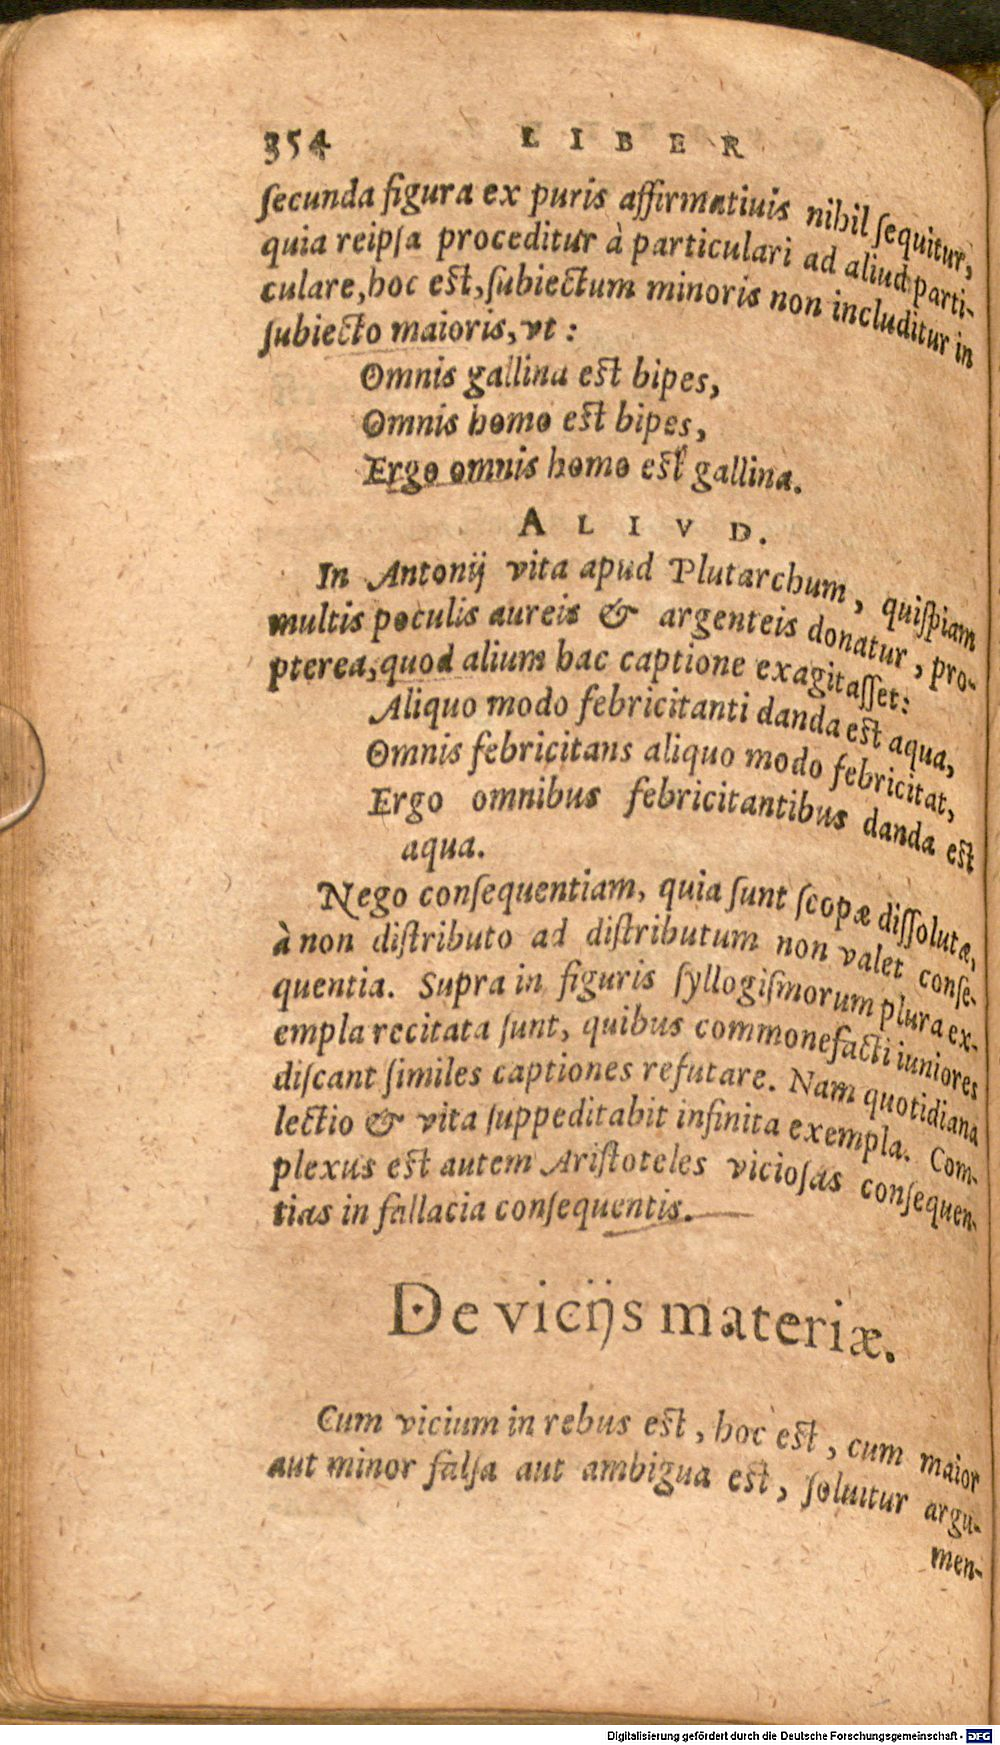 354 LIBER
ſecunda figura ex puris affirmatiuis nihil ſequitur,
quia reipſa proceditur à particulari ad aliud parti-
culare, hoc est, ſubiectum minoris non includitur in
ſubiecto maioris, vt:
Omnis gallina est bipes,
Omnis homo est bipes,
Ergo omnis homo est gallina.
ALIVD.
In Antonij vita apud Plutarchum, quiſpiam
multis poculis aureis & argenteis donatur, pro-
pterea, quod alium hac captione exagitaſſet:
Aliquo modo febricitanti danda est aqua,
Omnis febricitans aliquo modo febricitat,
Ergo omnibus febricitantibus danda est
aqua.
Nego conſequentiam, quia ſunt ſcopæ diſſolutæ,
à non diſtributo ad diſtributum non valet conſe-
quentia. Supra in figuris ſyllogiſmorum plura ex-
empla recitata ſunt, quibus commonefacti iuniores
diſcant ſimiles captiones refutare. Nam quotidiana
lectio & vita ſuppeditabit infinita exempla. Com-
plexus est autem Ariſtoteles vicioſas conſequen-
tias in fallacia conſequentis.
De vicijs materiæ.
Cum vicium in rebus est, hoc est, cum maior
aut minor falſa aut ambigua est, ſoluitur argu-
men-
Digitalisierung gefördert durch die Deutsche Forschungsgemeinschaft - DFG